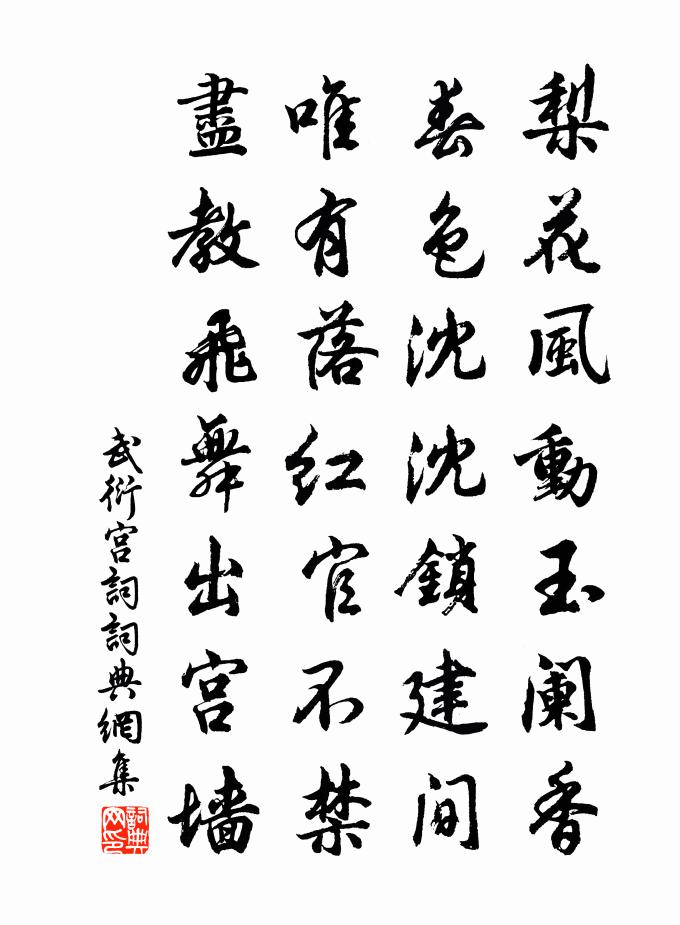 梨花風動玉阑香
春色沈沈鎖建间
唯有落红官不禁
盡教飛舞出宫墻
武衍宫詞詞典網集
詞典网印